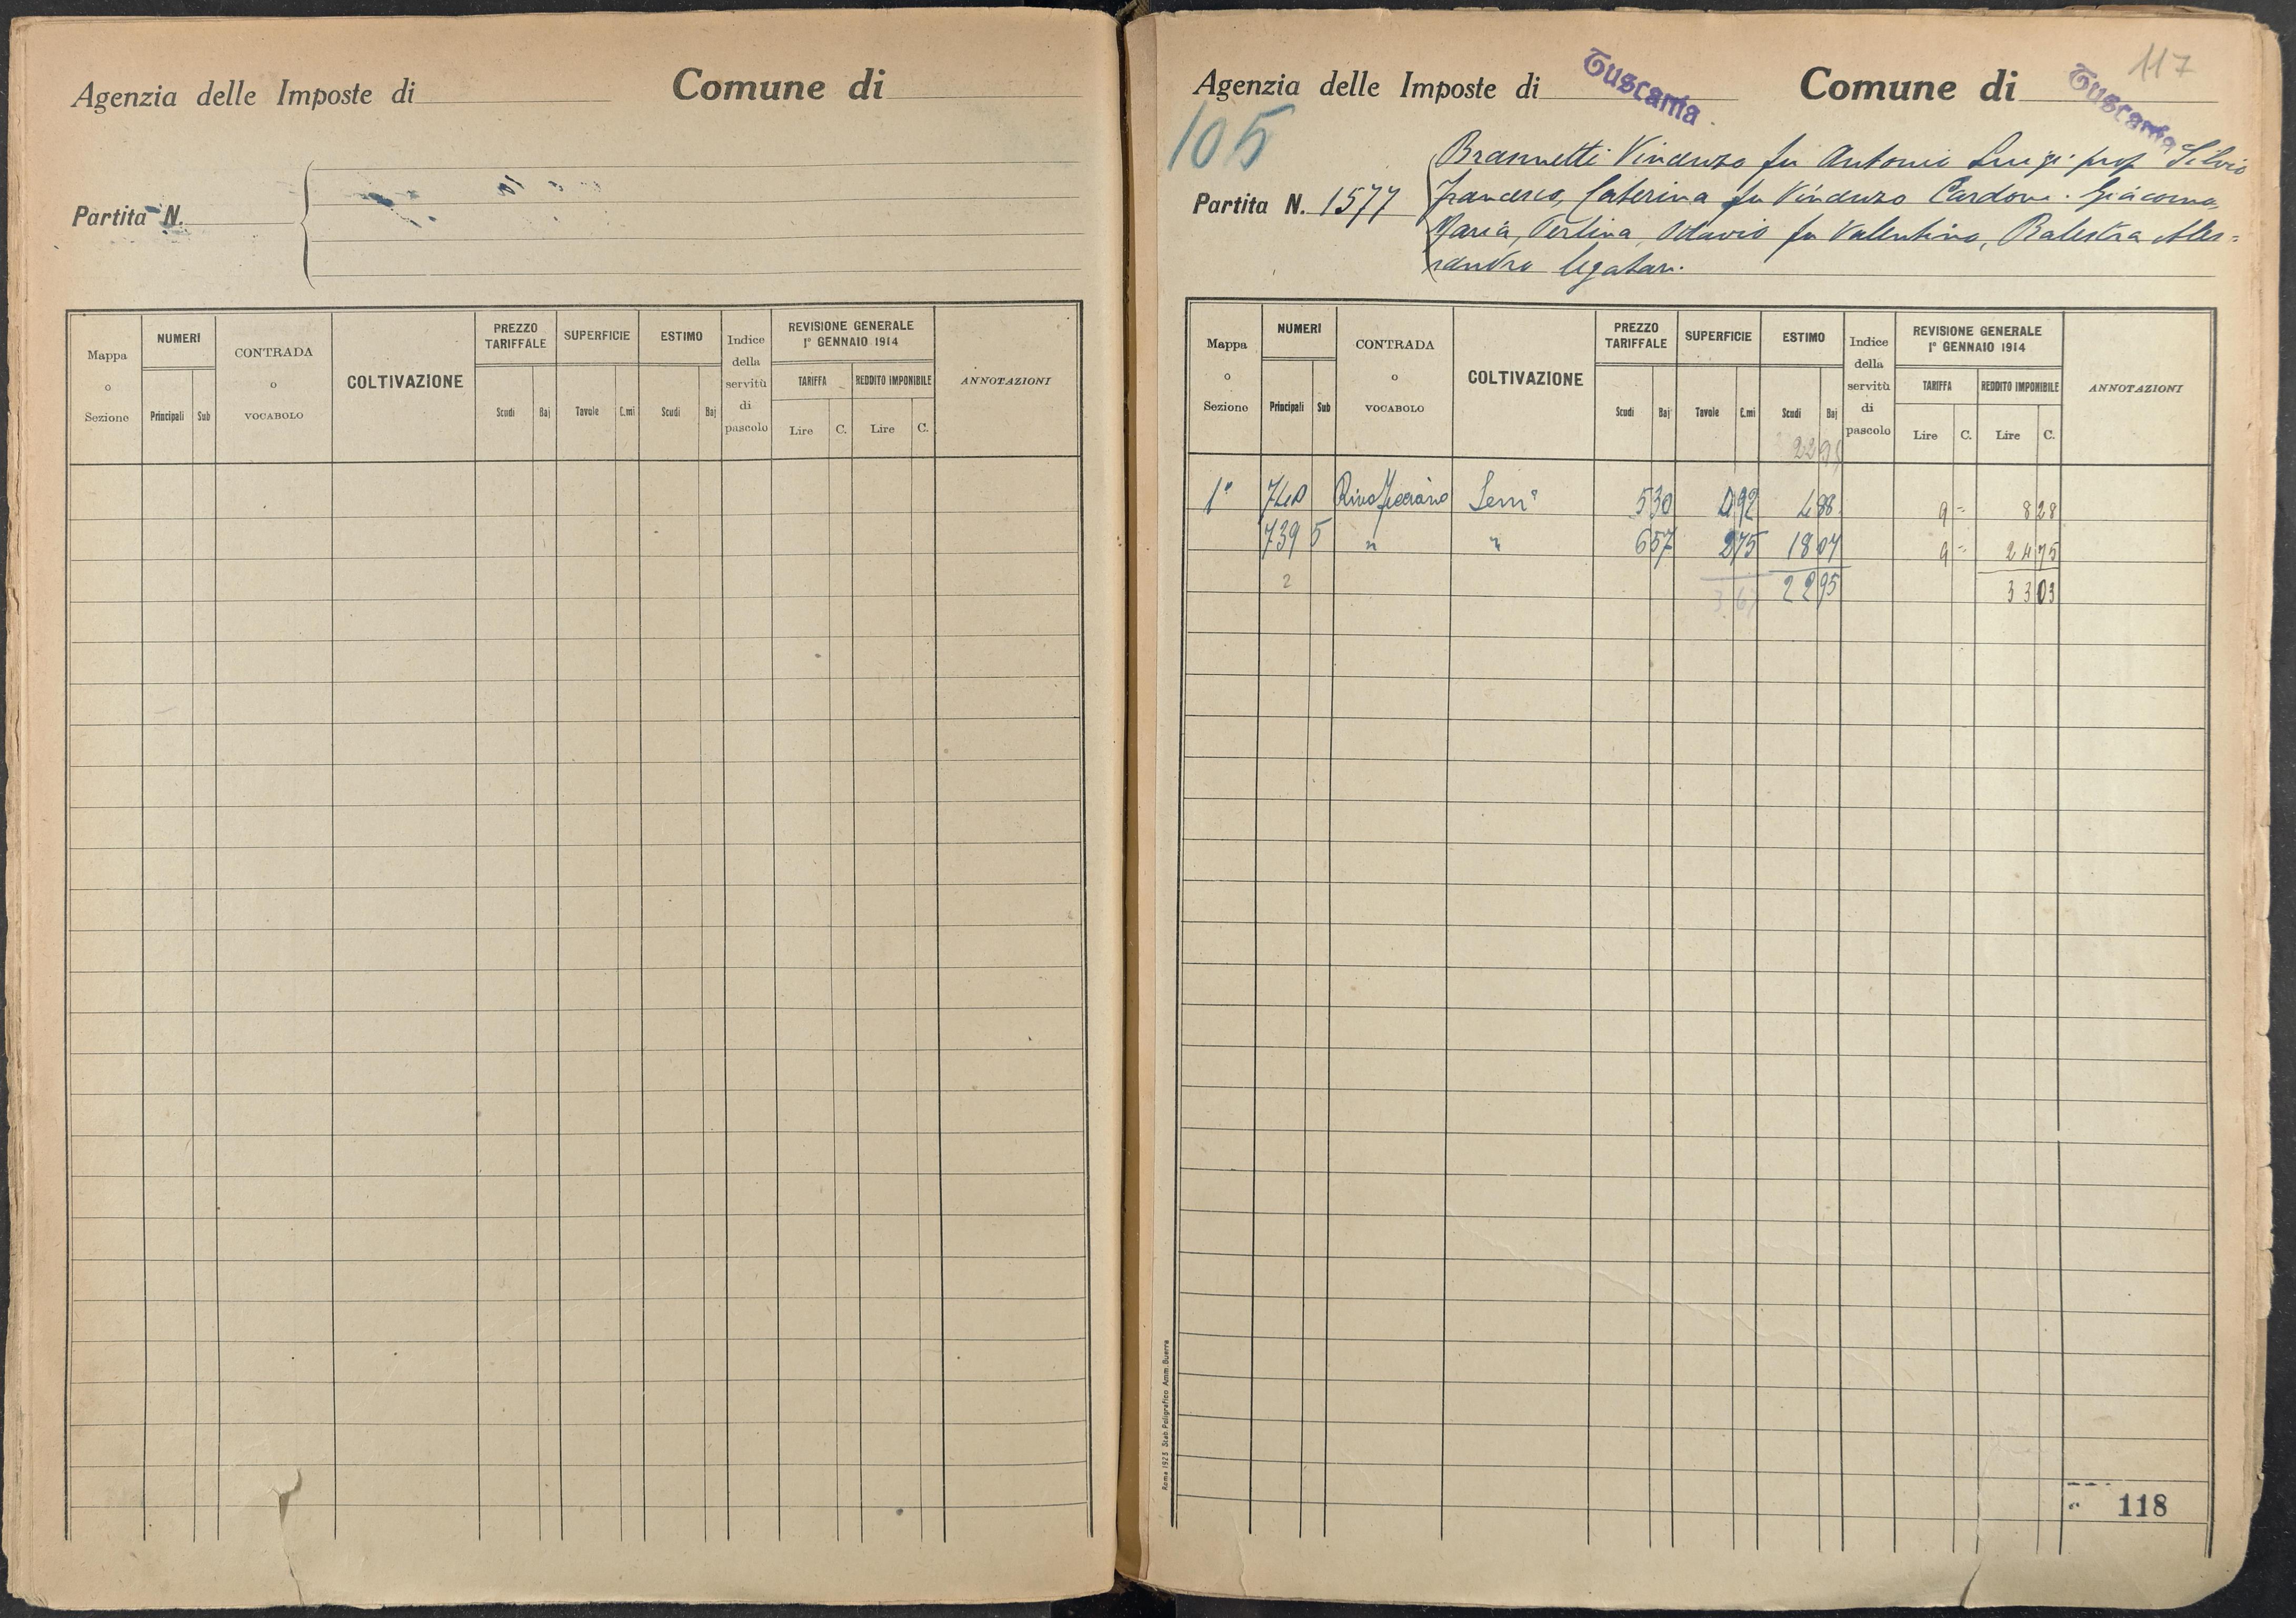 Agenzia delle Imposte di Comune di
Partita N.
Mappa o Sezione NUMERI Principali Sub CONTRADA o VOCABOLO COLTIVAZIONE PREZZO TARIFFALE Scudi Baj SUPERFICIE Tavole C.mi ESTIMO Scudi Baj Indice della servitù di pascolo REVISIONE GENERALE 1° GENNAIO 1914 TARIFFA Lire C. REDDITO IMPONIBILE Lire C. ANNOTAZIONI
117
Agenzia delle Imposte di Tuscania Comune di Tuscania
105
Brannetti Vincenzo fu Antonio Luigi prop Silvio
Partita N. 1577 Francesco, Caterina fu Vincenzo Cardoni Giacomo,
Maria, Ottavio fu Valentino, Balestra Ales=
sandro legatari.
Mappa o Sezione NUMERI Principali Sub CONTRADA o VOCABOLO COLTIVAZIONE PREZZO TARIFFALE Scudi Baj SUPERFICIE Tavole C.mi ESTIMO Scudi Baj Indice della servitù di pascolo REVISIONE GENERALE 1° GENNAIO 1914 TARIFFA Lire C. REDDITO IMPONIBILE Lire C. ANNOTAZIONI
22 95
1ª 740 Semº 5 30 92 4 88 9 = 8 28
739 5 " " 6 57 2 75 18 07 9 = 24 75
2 3 67 22 95 33 03
Roma 1925 Stab. Poligrafico Amm. Guerra
118